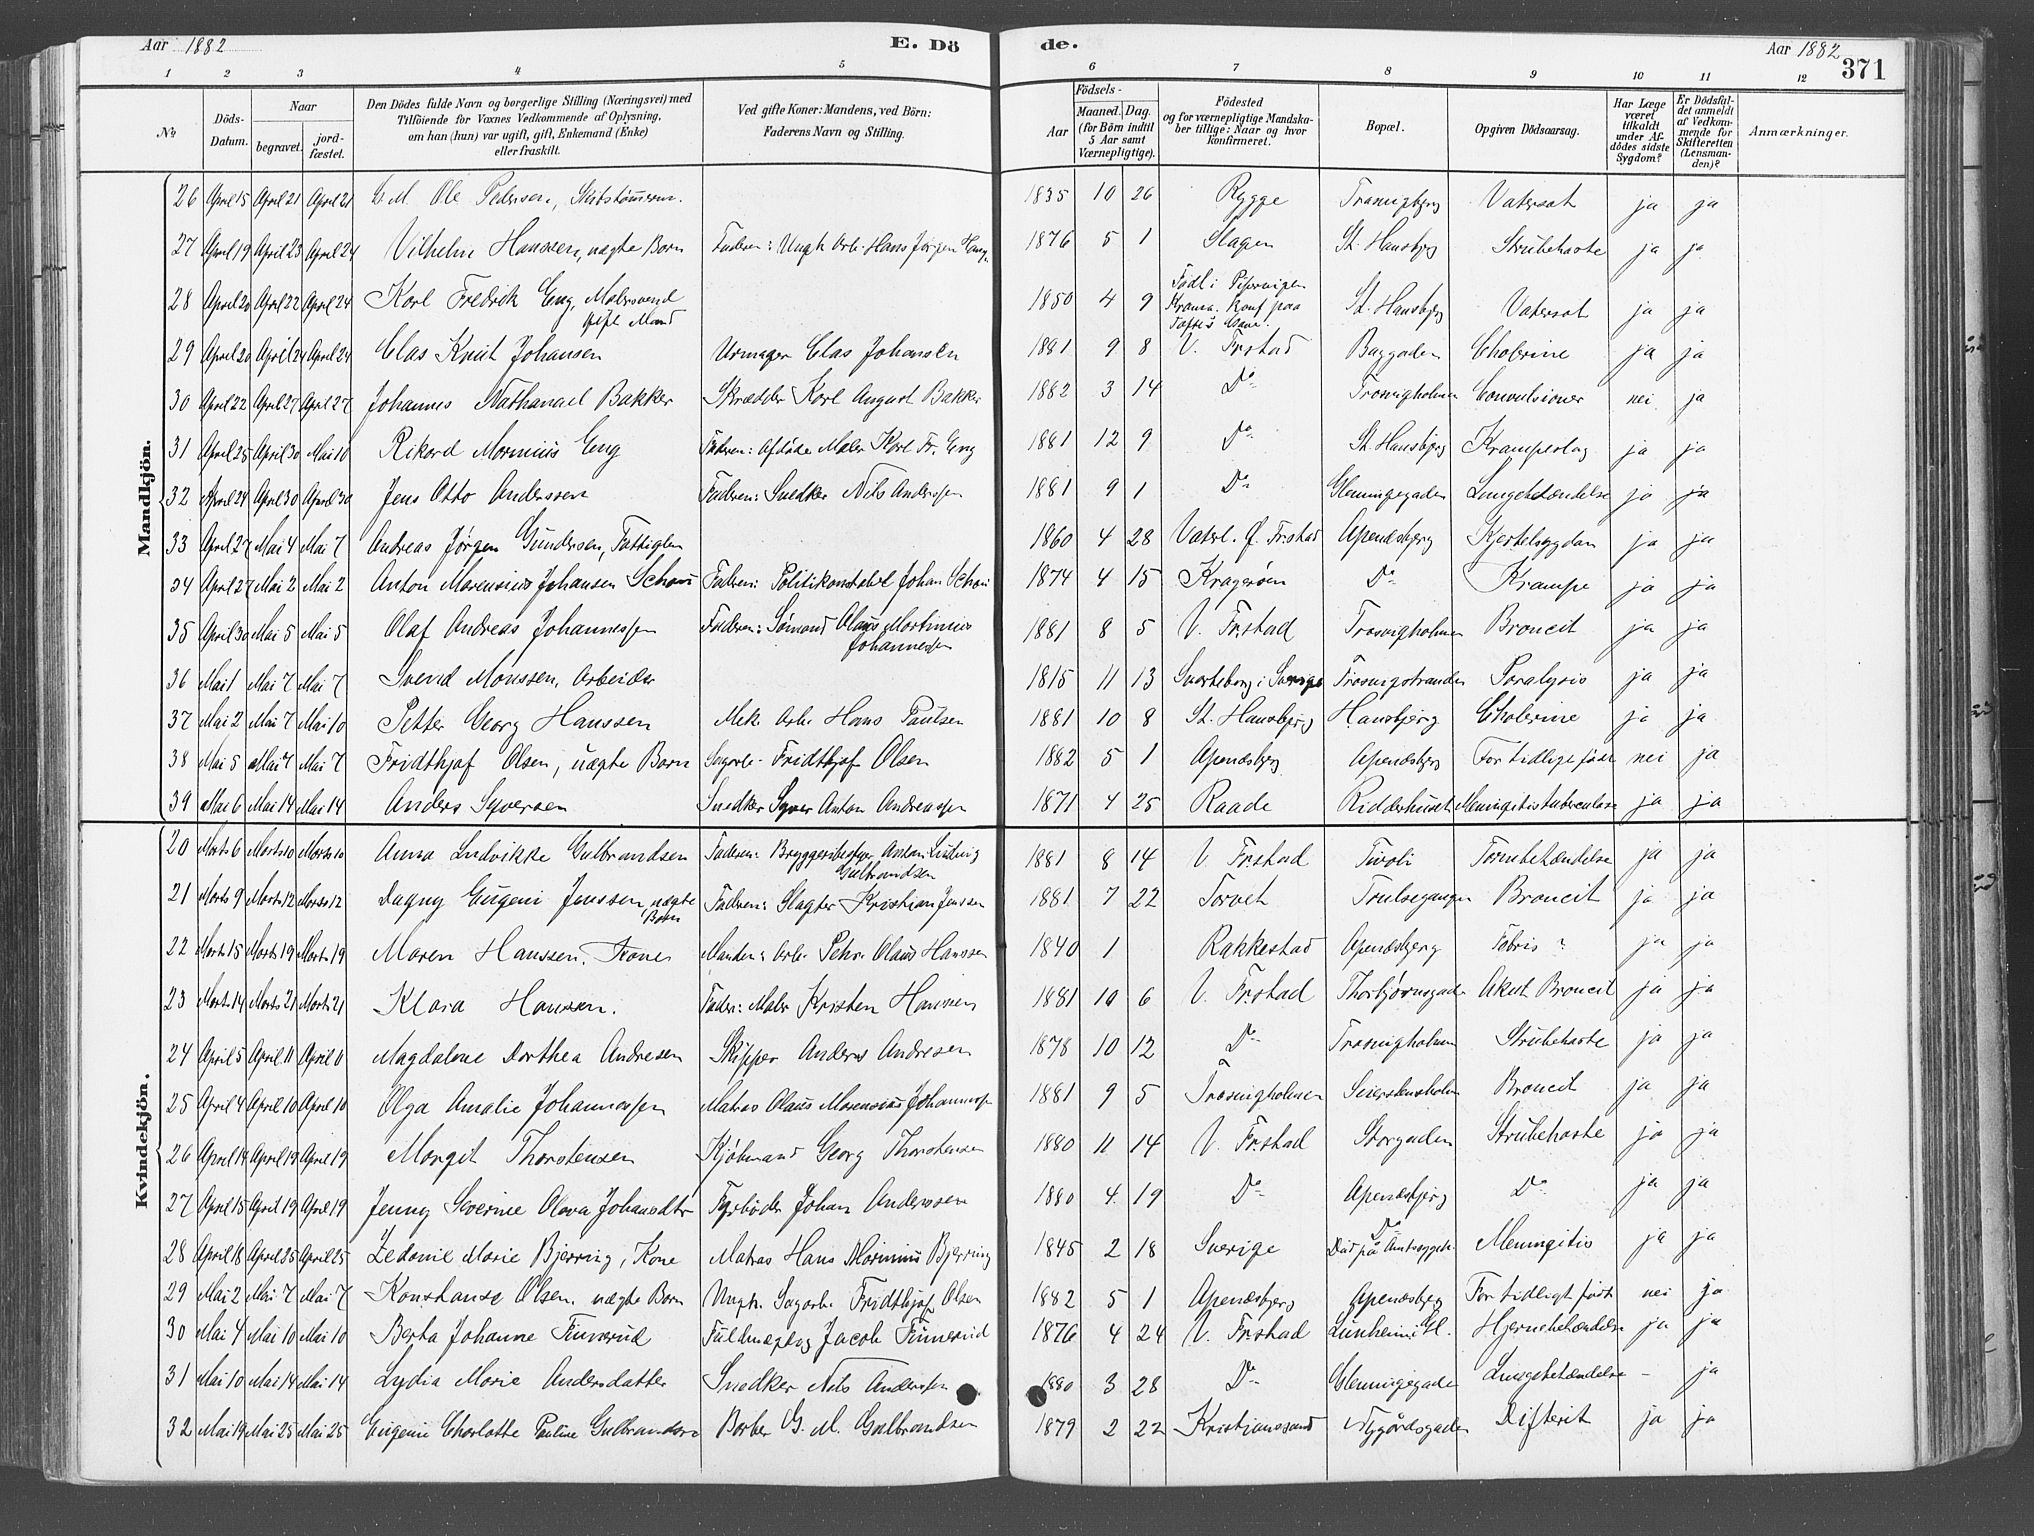 Aar 1882 E. Dö de. Aar 1882 371
1 2 3 4 5 6 7 8 9 10 11 12
No Döds-Datum. Naar begravet. jordfæstet. Den Dödes fulde Navn og borgerlige Stilling (Næringsvei) med Tilföiende for Voxnes Vedkommende af Oplysning, om han (hun) var ugift, gift, Enkemand (Enke) eller fraskilt. Ved gifte Koner: Mandens, ved Börn: Faderens Navn og Stilling. Födsels- Aar Maaned. Dag. (for Börn indtil 5 Aar samt Værnepligtige). Födested og for værnepligtige Mandskaber tillige: Naar og hvor konfirmeret. Bopæl. Opgiven Dödsaarsag. Har Læge været tilkaldt under Afdödes sidste Sygdom? Er Dödsfaldet anmeldt af Vedkommende for Skifteretten (Lensmanden)? Anmærkninger.
Mandkjön.
26 April 15 April 21 April 21 Ole Pedersen, Skibstömerm. 1835 10 26 Rygge Trosvigbjerg Vatersot ja ja
27 April 19 April 23 April 24 Vilhelm Hanssen, uægte Barn Faderen: Ungk. Arb. Hans Jørgen 1876 5 1 Slagen St. Hansbjerg Strubehoste ja ja
28 April 20 April 22 April 24 Karl Fredrik Eng, Malersvend gift Mand 1850 4 9 Født i Pipervigen Krania. Konf paa St. Hansbjerg Vatersot ja ja
29 April 20 April 24 April 24 Clas Knut Johansen Urmager Clas Johansen 1881 9 8 V. Fr.stad Baggaden Cholerine ja ja
30 April 22 April 27 April 27 Johannes Nathanael Bakker Skrædder Karl August Bakker 1882 3 14 Do Trosvigholmen Convulsioner nei ja
31 April 25 April 30 Mai 10 Rikard Mornius Eng Faderen: Afdöde Maler Karl Fr. Eng 1881 12 9 Do St. Hansbjerg Krampeslag ja ja
32 April 24 April 30 April 30 Jens Otto Anderssen Faderen: Snedker Nils Anderssen 1881 9 1 Do Glemmingegaden Lungebetændelse ja ja
33 April 27 Mai 4 Mai 7 Andreas Jørgen Gundersen, Fattiglem 1860 4 28 Vaterl. Ø. Fr.stad Apenæsbjerg Kjertelsygdom ja ja
34 April 27 Mai 2 Mai 2 Anton Marensius Johansen Schou Faderen: Politikonstabel Johan Schou 1874 4 15 Kragerøen Do Krampe ja ja
35 April 30 Mai 5 Mai 5 Olaf Andreas Johannessen Faderen: Sömand Olaus Martinius Johannessen 1881 8 5 V. Fr.stad Trosvigholmen Broncit ja ja
36 Mai 1 Mai 7 Mai 7 Svend Monssen, Arbeider 1815 11 13 Svarteborg i Sverige Trosvigstranden Paralysis ja ja
37 Mai 2 Mai 7 Mai 10 Petter Georg Hanssen Mek. Arb. Hans Paulsen 1881 10 8 St. Hansbjerg Hansbjerg Cholerine ja ja
38 Mai 5 Mai 7 Mai 7 Fridthjof Olsen, uægte Barn Sagarb. Fridthjof Olsen 1882 5 1 Apenæsbjerg Apenæsbjerg For tidlig född nei ja
39 Mai 6 Mai 14 Mai 14 Anders Syversen Snedker Syver Anton Andreassen 1871 4 25 Raade Ridderhuset Meningitis tuberculosa ja ja
Kvindekjön.
20 Marts 6 Marts 10 Marts 10 Anna Ludvikke Gulbrandsen Faderen: Bryggeribestyrer Anton Ludvig Gulbrandsen 1881 8 14 V. Fr.stad Tivoli Tarmbetændelse ja ja
21 Marts 9 Marts 12 Marts 12 Dagny Eugeni Jenssen uægte Barn Faderen: Slagter Kristian Jenssen 1881 7 22 Torvet Trulsegangen Broncit ja ja
22 Marts 15 Marts 19 Marts 19 Maren Hanssen, Kone Manden: Arb. Pehr Olaus Hanssen 1840 1 Rakkestad Apenæsbjerg Febris ? ja ja
23 Marts 14 Marts 21 Marts 21 Klara Hanssen. Fader: Maler Kristen Hanssen 1881 10 6 V. Fr.stad Thorbjørnsgade Akut Broncit ja ja
24 April 5 April 11 April 11 Magdalene Dorthea Andresen Skipper Anders Andresen 1878 10 12 Do Trosvigholmen Strubehoste ja ja
25 April 4 April 10 April 10 Olga Amalie Johannessen Matros Olaus Marensius Johannessen 1881 9 5 Trosvigholmen Seierstensholm Broncit ja ja
26 April 14 April 19 April 19 Margit Thorstensen Kjöbmand Georg Thorstensen 1880 11 14 V. Fr.stad Storgaden Strubehoste ja ja
27 April 15 April 19 April 19 Jenny Severine Olava Johansdtr Fyrböder Johan Anderssen 1880 4 19 Do Apenæsbjerg Do ja ja
28 April 18 April 25 April 25 Zedonie Marie Bjerring, Kone Matros Hans Morinius Bjerring 1845 2 18 Sverige Do Död på Amtssygeh. Meningitis ja ja
29 Mai 2 Mai 7 Mai 7 Konstanse Olsen, uægte Barn Ungk. Sagarb. Fridthjof Olsen 1882 5 1 Apenæsbjerg Apenæsbjerg For tidligt födt nei ja
30 Mai 4 Mai 10 Mai 10 Berta Johanne Finnerud Fuldmægtig Jacob Finnerud 1876 4 24 V. Fr.stad Lunheim Hjernebetændelse ja ja
31 Mai 10 Mai 14 Mai 14 Lydia Marie Andersdatter Snedker Nils Anderssen 1880 3 28 Do Glemmingegaden Lungebetændelse - ja
32 Mai 19 Mai 25 Mai 25 Eugenie Charlotte Pauline Gulbrandsen Barber G. M. Gulbrandsen 1879 2 22 Kristianssand Nygårdsgaden Difterit ja ja